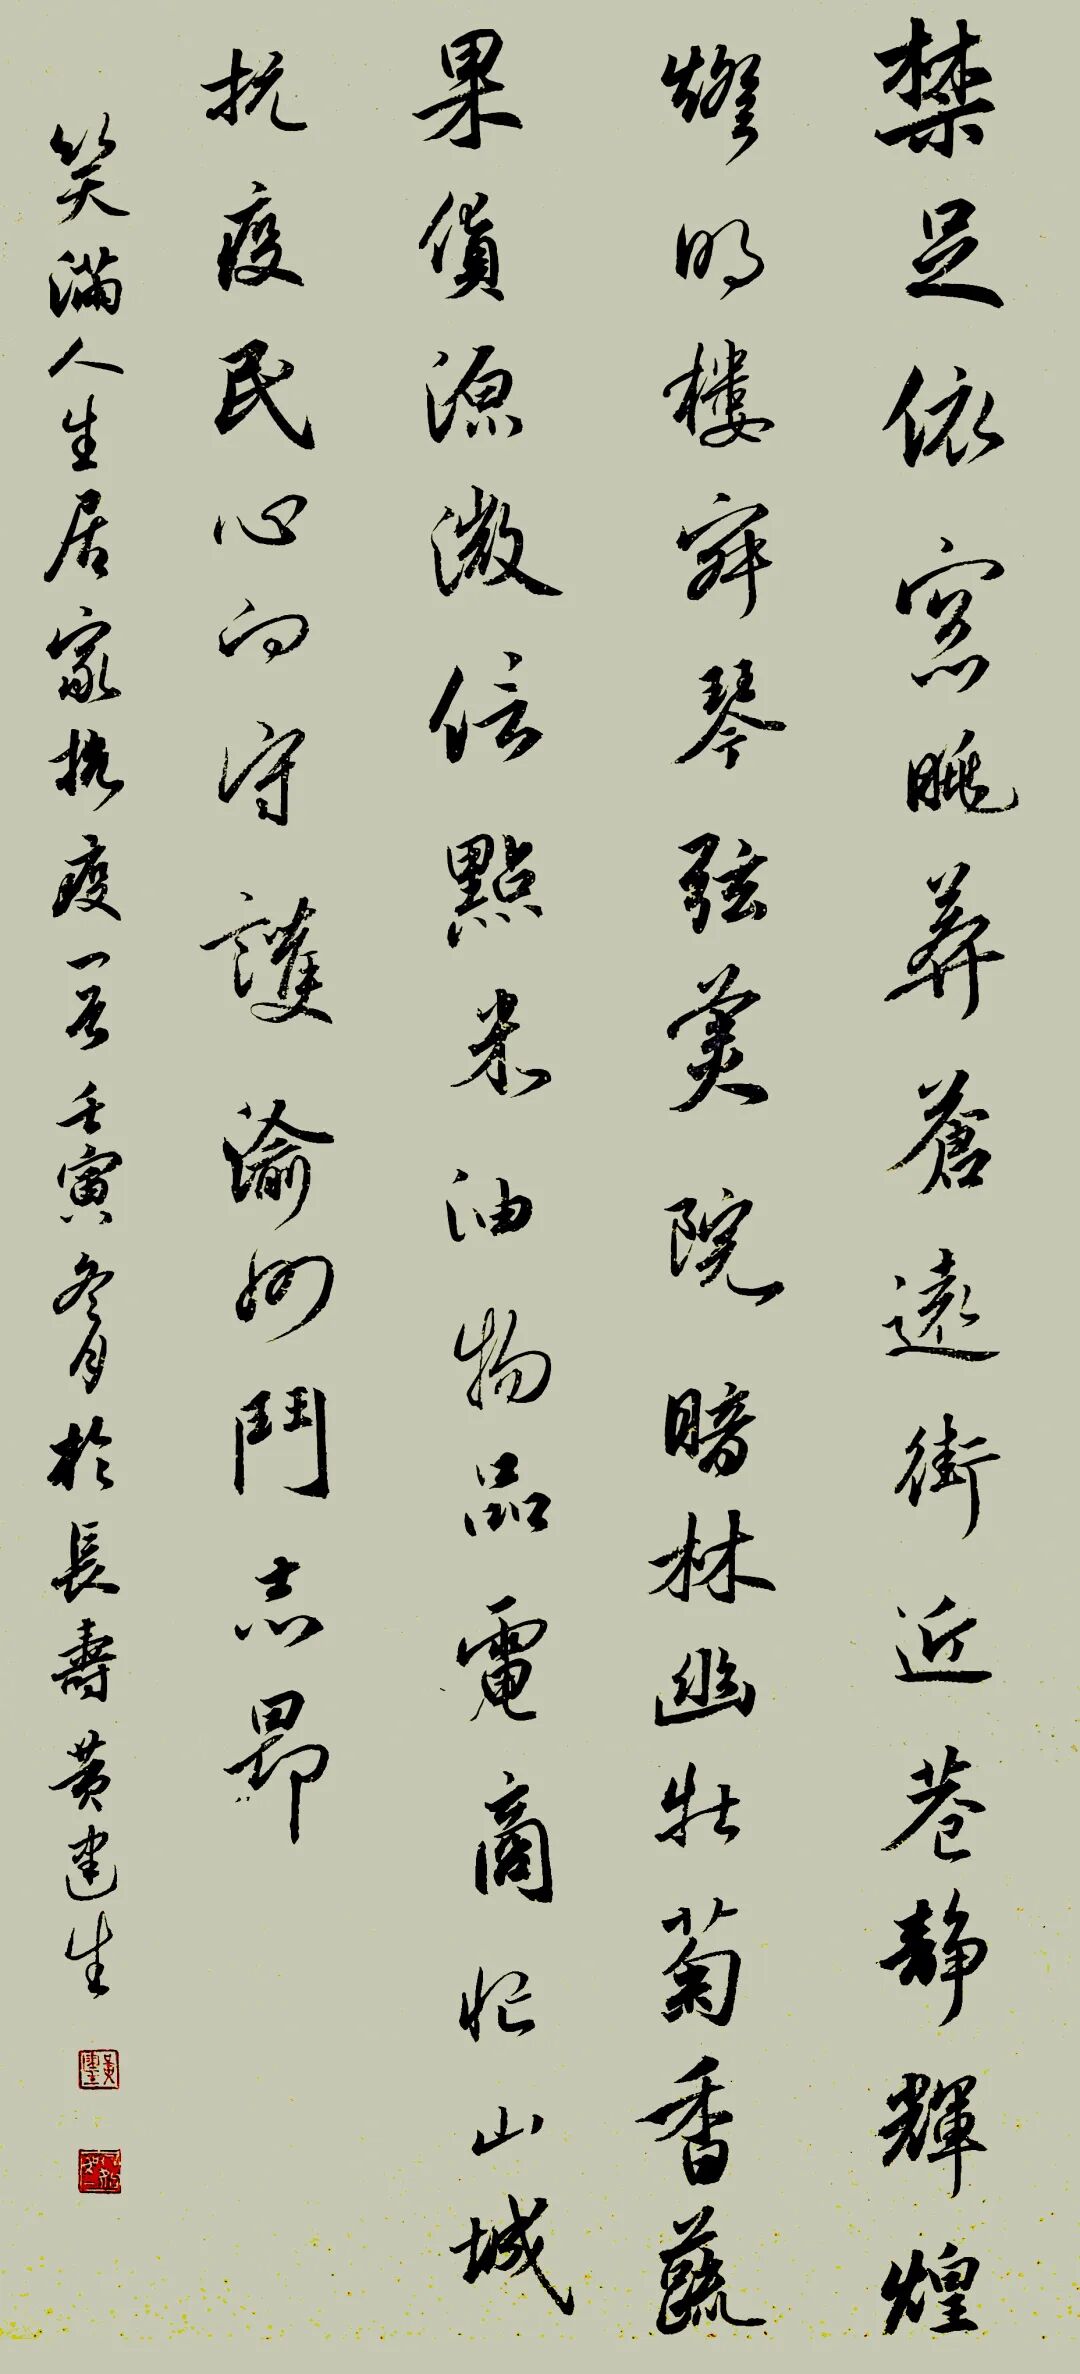 禁足依窓眺莽蒼遠街近巷静輝煌
燈明樓寂琴弦美院暗林幽牡菊香蔬
果貨源微信點米油物品電商忙山城
抗疫民心向守護渝州鬥志昂
笑滿人生居家抗疫一首壬寅冬月於長壽黄建生